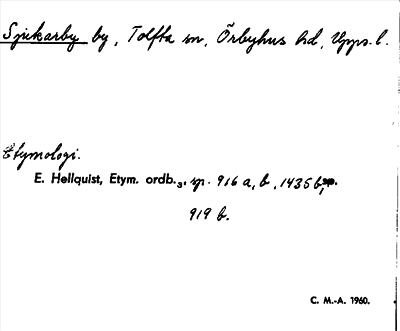 Sjukarby by, Tolfta sn, Örbyhus hd, Upps. l.
Etymologi.
E. Hellquist, Etym. ordb.3, sp. 916 a, b, 1435 b,
919 b.
C. M.-A. 1960.